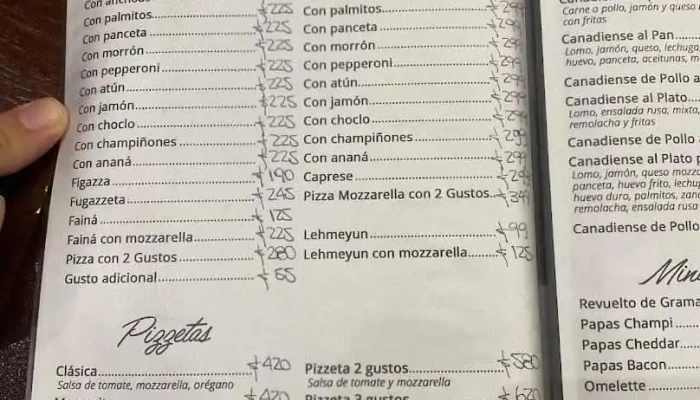 Con palmitos........ $225
Con panceta........ $225
Con morrón........ $225
Con pepperoni........ $225
Con atún........ $225
Con jamón........ $225
Con choclo........ $225
Con champiñones........ $225
Con ananá........ $225
Figazza........ $190
Fugazzeta........ $245
Fainá........ $125
Fainá con mozzarella........ $225
Pizza con 2 Gustos........ $280
Gusto adicional........ $65
Con palmitos........ $299
Con panceta........ $299
Con morrón........ $299
Con pepperoni........ $299
Con atún........ $299
Con jamón........ $299
Con choclo........ $299
Con champiñones........ $299
Con ananá........ $299
Caprese........ $299
Pizza Mozzarella con 2 Gustos.. $349
Lehmeyun........ $99
Lehmeyun con mozzarella........ $125
Pizzetas
Clásica........ $420
Salsa de tomate, mozzarella, orégano
$420
Pizzeta 2 gustos........ $580
Salsa de tomate y mozzarella
Pizzeta 3 gustos........ $620
Carne o pollo, jamón y queso
con fritas
Canadiense al Pan........
Lomo, jamón, queso, lechuga
huevo, panceta, aceitunas, m
Canadiense de Pollo a
Canadiense al Plato........
Lomo, ensalada rusa, mixta,
remolacha y fritas
Canadiense de Pollo
Canadiense al Plato p
Lomo, jamón, queso mozz
panceta, huevo frito, lechu
huevo duro, palmitos, zan
remolacha, ensalada rusa
Canadiense de Pollo
Min
Revuelto de Grama
Papas Champi........
Papas Cheddar........
Papas Bacon........
Omelette........